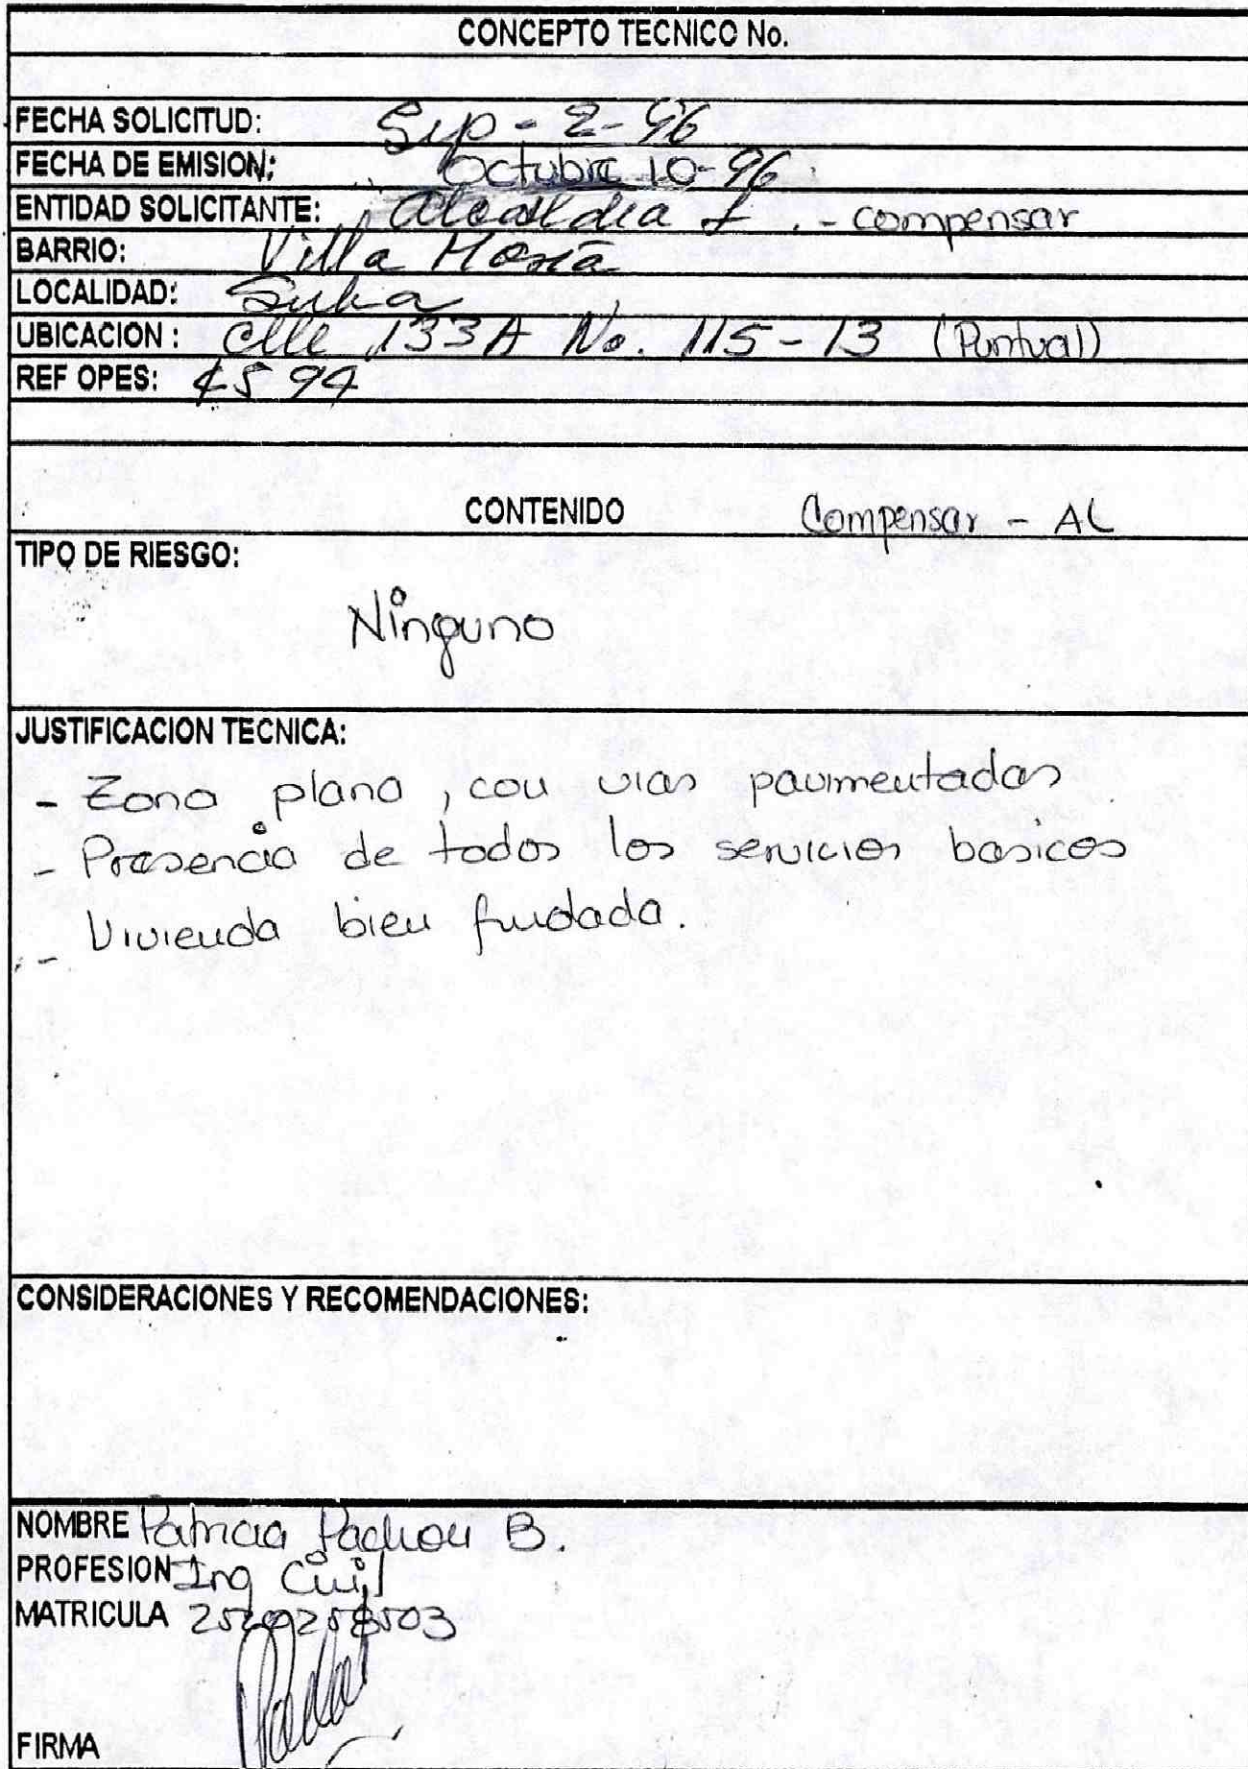 CONCEPTO TECNICO No.
FECHA SOLICITUD: Sep - 2 - 96
FECHA DE EMISION: Octubre 10-96
ENTIDAD SOLICITANTE: Alcaldia - compensar
BARRIO: Villa Maria
LOCALIDAD: Suba
UBICACION : Clle 133A No. 115 - 13 (Puntual)
REF OPES: 4594
CONTENIDO Compensar - AL
TIPO DE RIESGO:
Ninguno
JUSTIFICACION TECNICA:
- Zona plana, con vias pavimentadas.
- Presencia de todos los servicios basicos
- Vivienda bien fundada.
CONSIDERACIONES Y RECOMENDACIONES:
NOMBRE Patricia Pachon B.
PROFESION Ing Civil
MATRICULA
FIRMA